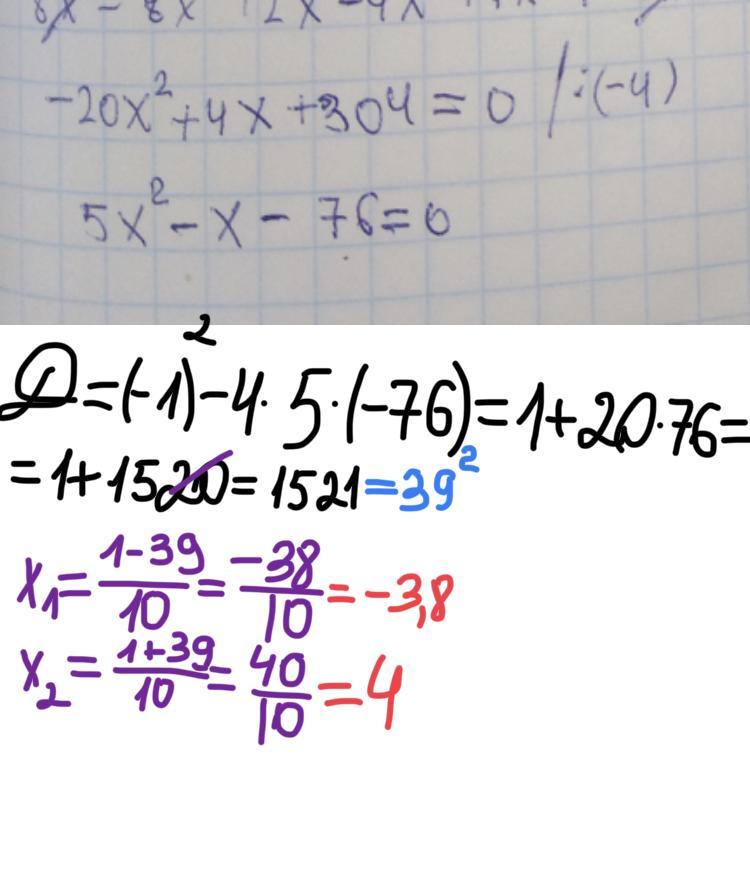 -20x² + 4x + 304 = 0 /:(-4)
5x² - x - 76 = 0
D = (-1)² - 4 · 5 · (-76) = 1 + 20 · 76 =
= 1 + 1520 = 1521 = 39²
x₁ = (1-39)/10 = -38/10 = -3,8
x₂ = (1+39)/10 = 40/10 = 4